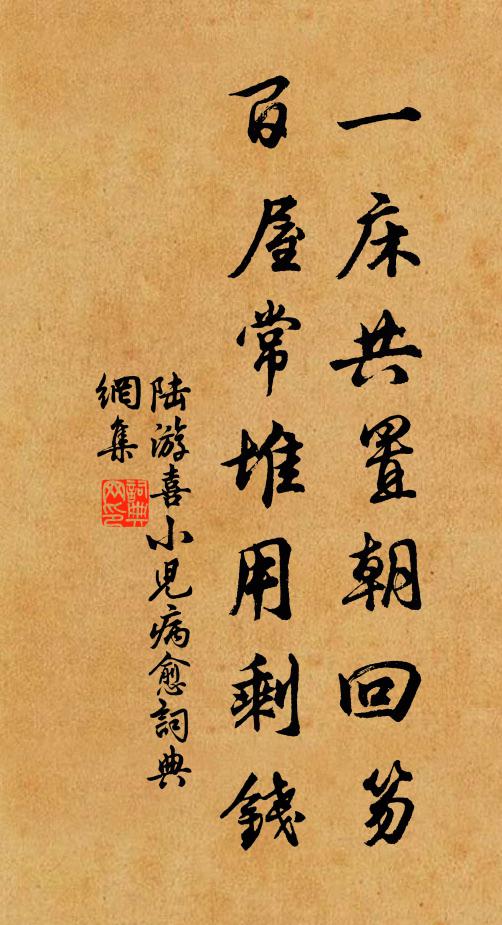 一床共置朝回笏
百屋常堆用剩錢
陆游喜小兒病愈詞典
網集
詞典
网印